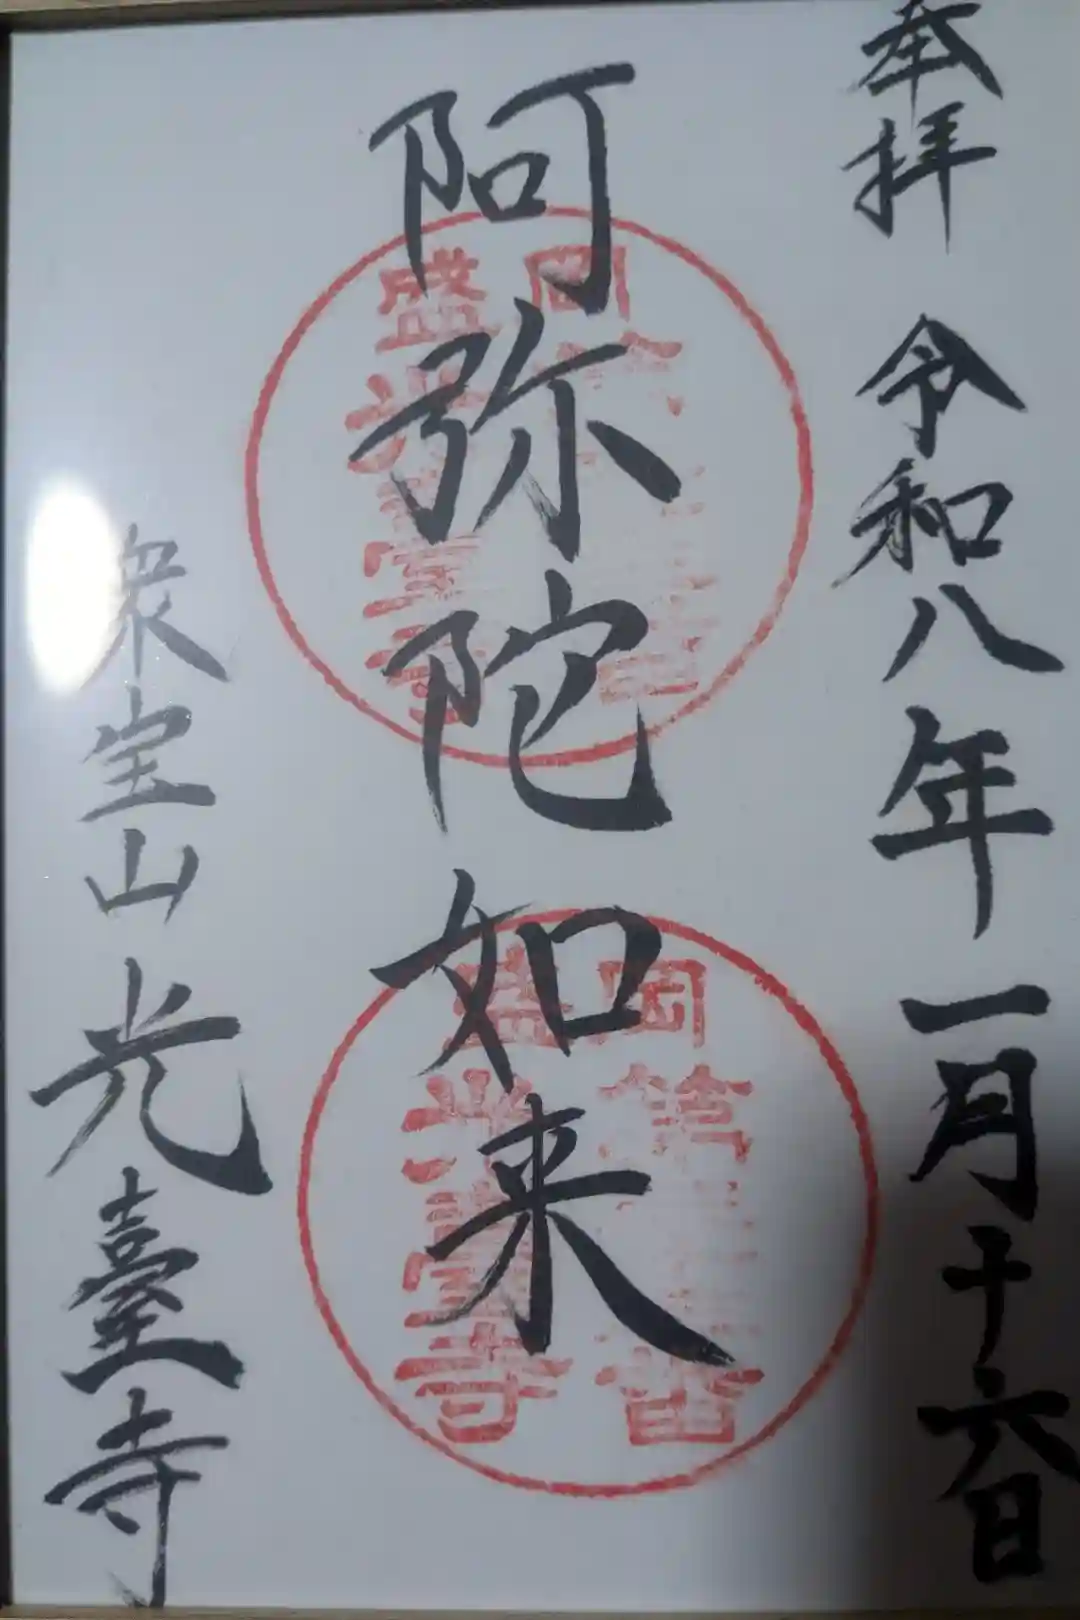 奉拝 令和八年一月十六日
阿弥陀如来
衆宝山 光臺寺
盛岡